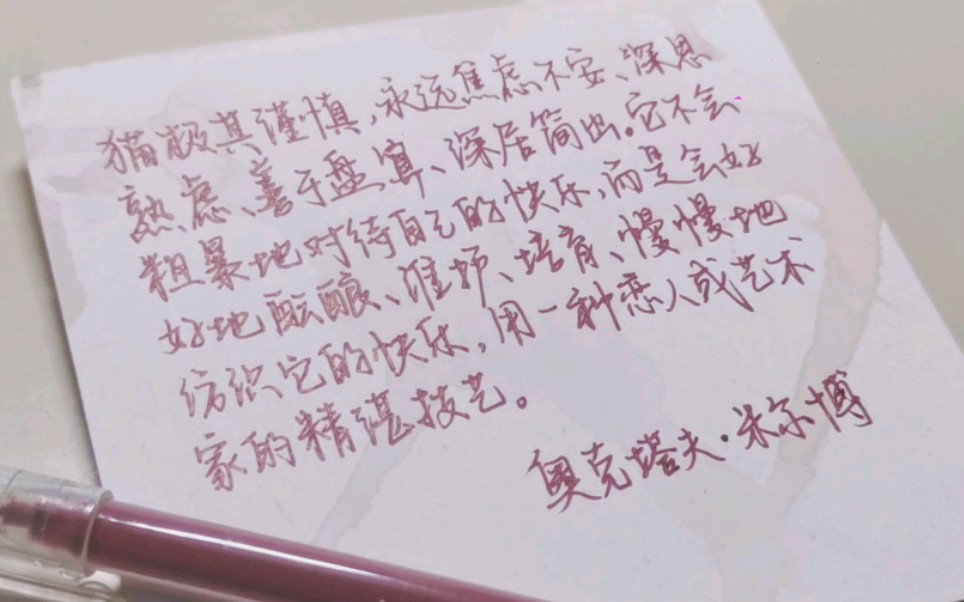 猫极其谨慎,永远焦虑不安、深思
熟虑、善于盘算、深居简出。它不会
粗暴地对待自己的快乐,而是会好
好地酝酿、准护、培育、慢慢地
纺织它的快乐,用一种恋人或艺术
家的精湛技艺。
奥克塔夫·米尔博